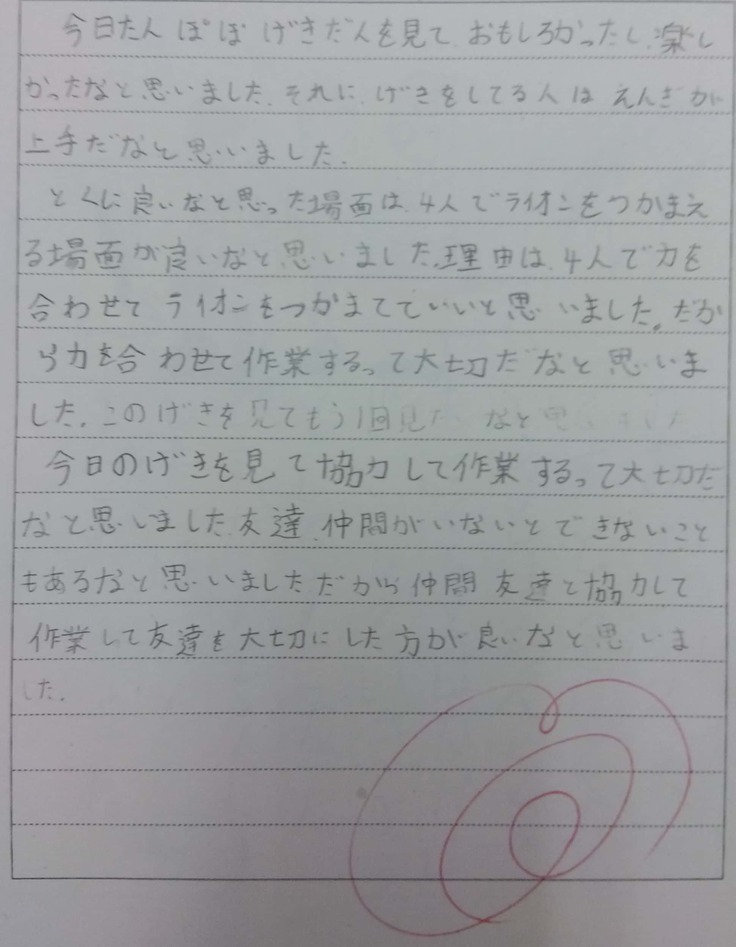 今日たんぽぽげきだんを見て、おもしろかったし、楽し
かったなと思いました。それに、げきをしてる人はえんぎが
上手だなと思いました。
とくに良いなと思った場面は、4人でライオンをつかまえ
る場面が良いなと思いました。理由は、4人で力を
合わせてライオンをつかまてていいと思いました。だか
ら力を合わせて作業するって大切だなと思いま
した。このげきを見てもう1回見たいなと思いました
今日のげきを見て協力して作業するって大切だ
なと思いました。友達、仲間がいないとできないこと
もあるなと思いました。だから仲間、友達と協力して
作業して友達を大切にした方が良いなと思いま
した。